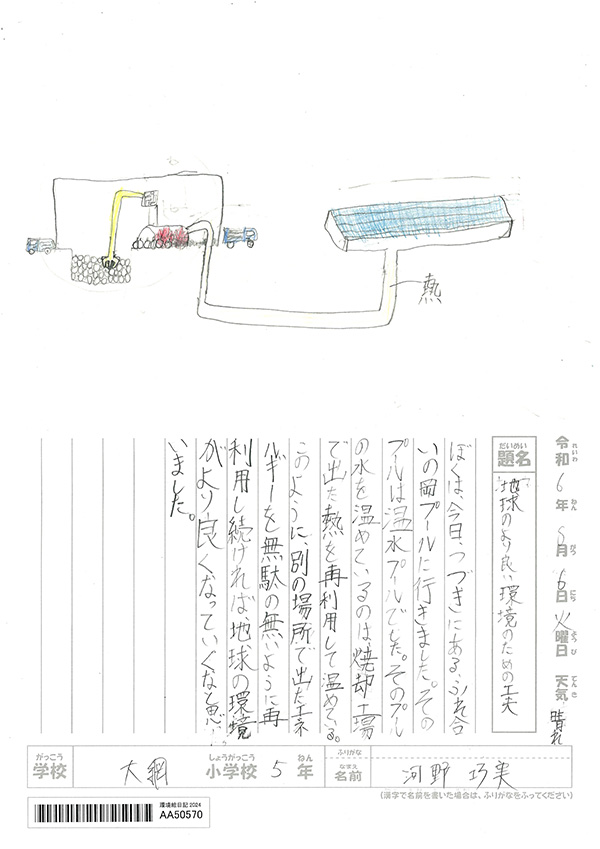 熱
令和6年5月6日火曜日 天気 晴れ
れいわ ねん がつ にち ようび てんき
だいめい
題名
地球のより良い環境のための工夫
ぼくは、今日、つづきにある、ふれ合
いの岡プールに行きました。その
プールは温水プールでした。そのプール
の水を温めているのは、焼却工場
で出た熱を再利用して温めている。
このように、別の場所で出たエネ
ルギーをも無駄の無いように再
利用し続ければ、地球の環境
がより良くなっていくなと思い
いました。
がっこう
学校
大綱
しょうがっこう
小学校
5
ねん
年
ふりがな
なまえ
名前
河野 巧実
(漢字で名前を書いた場合は、ふりがなをふってください)
環境絵日記 2024
AA50570